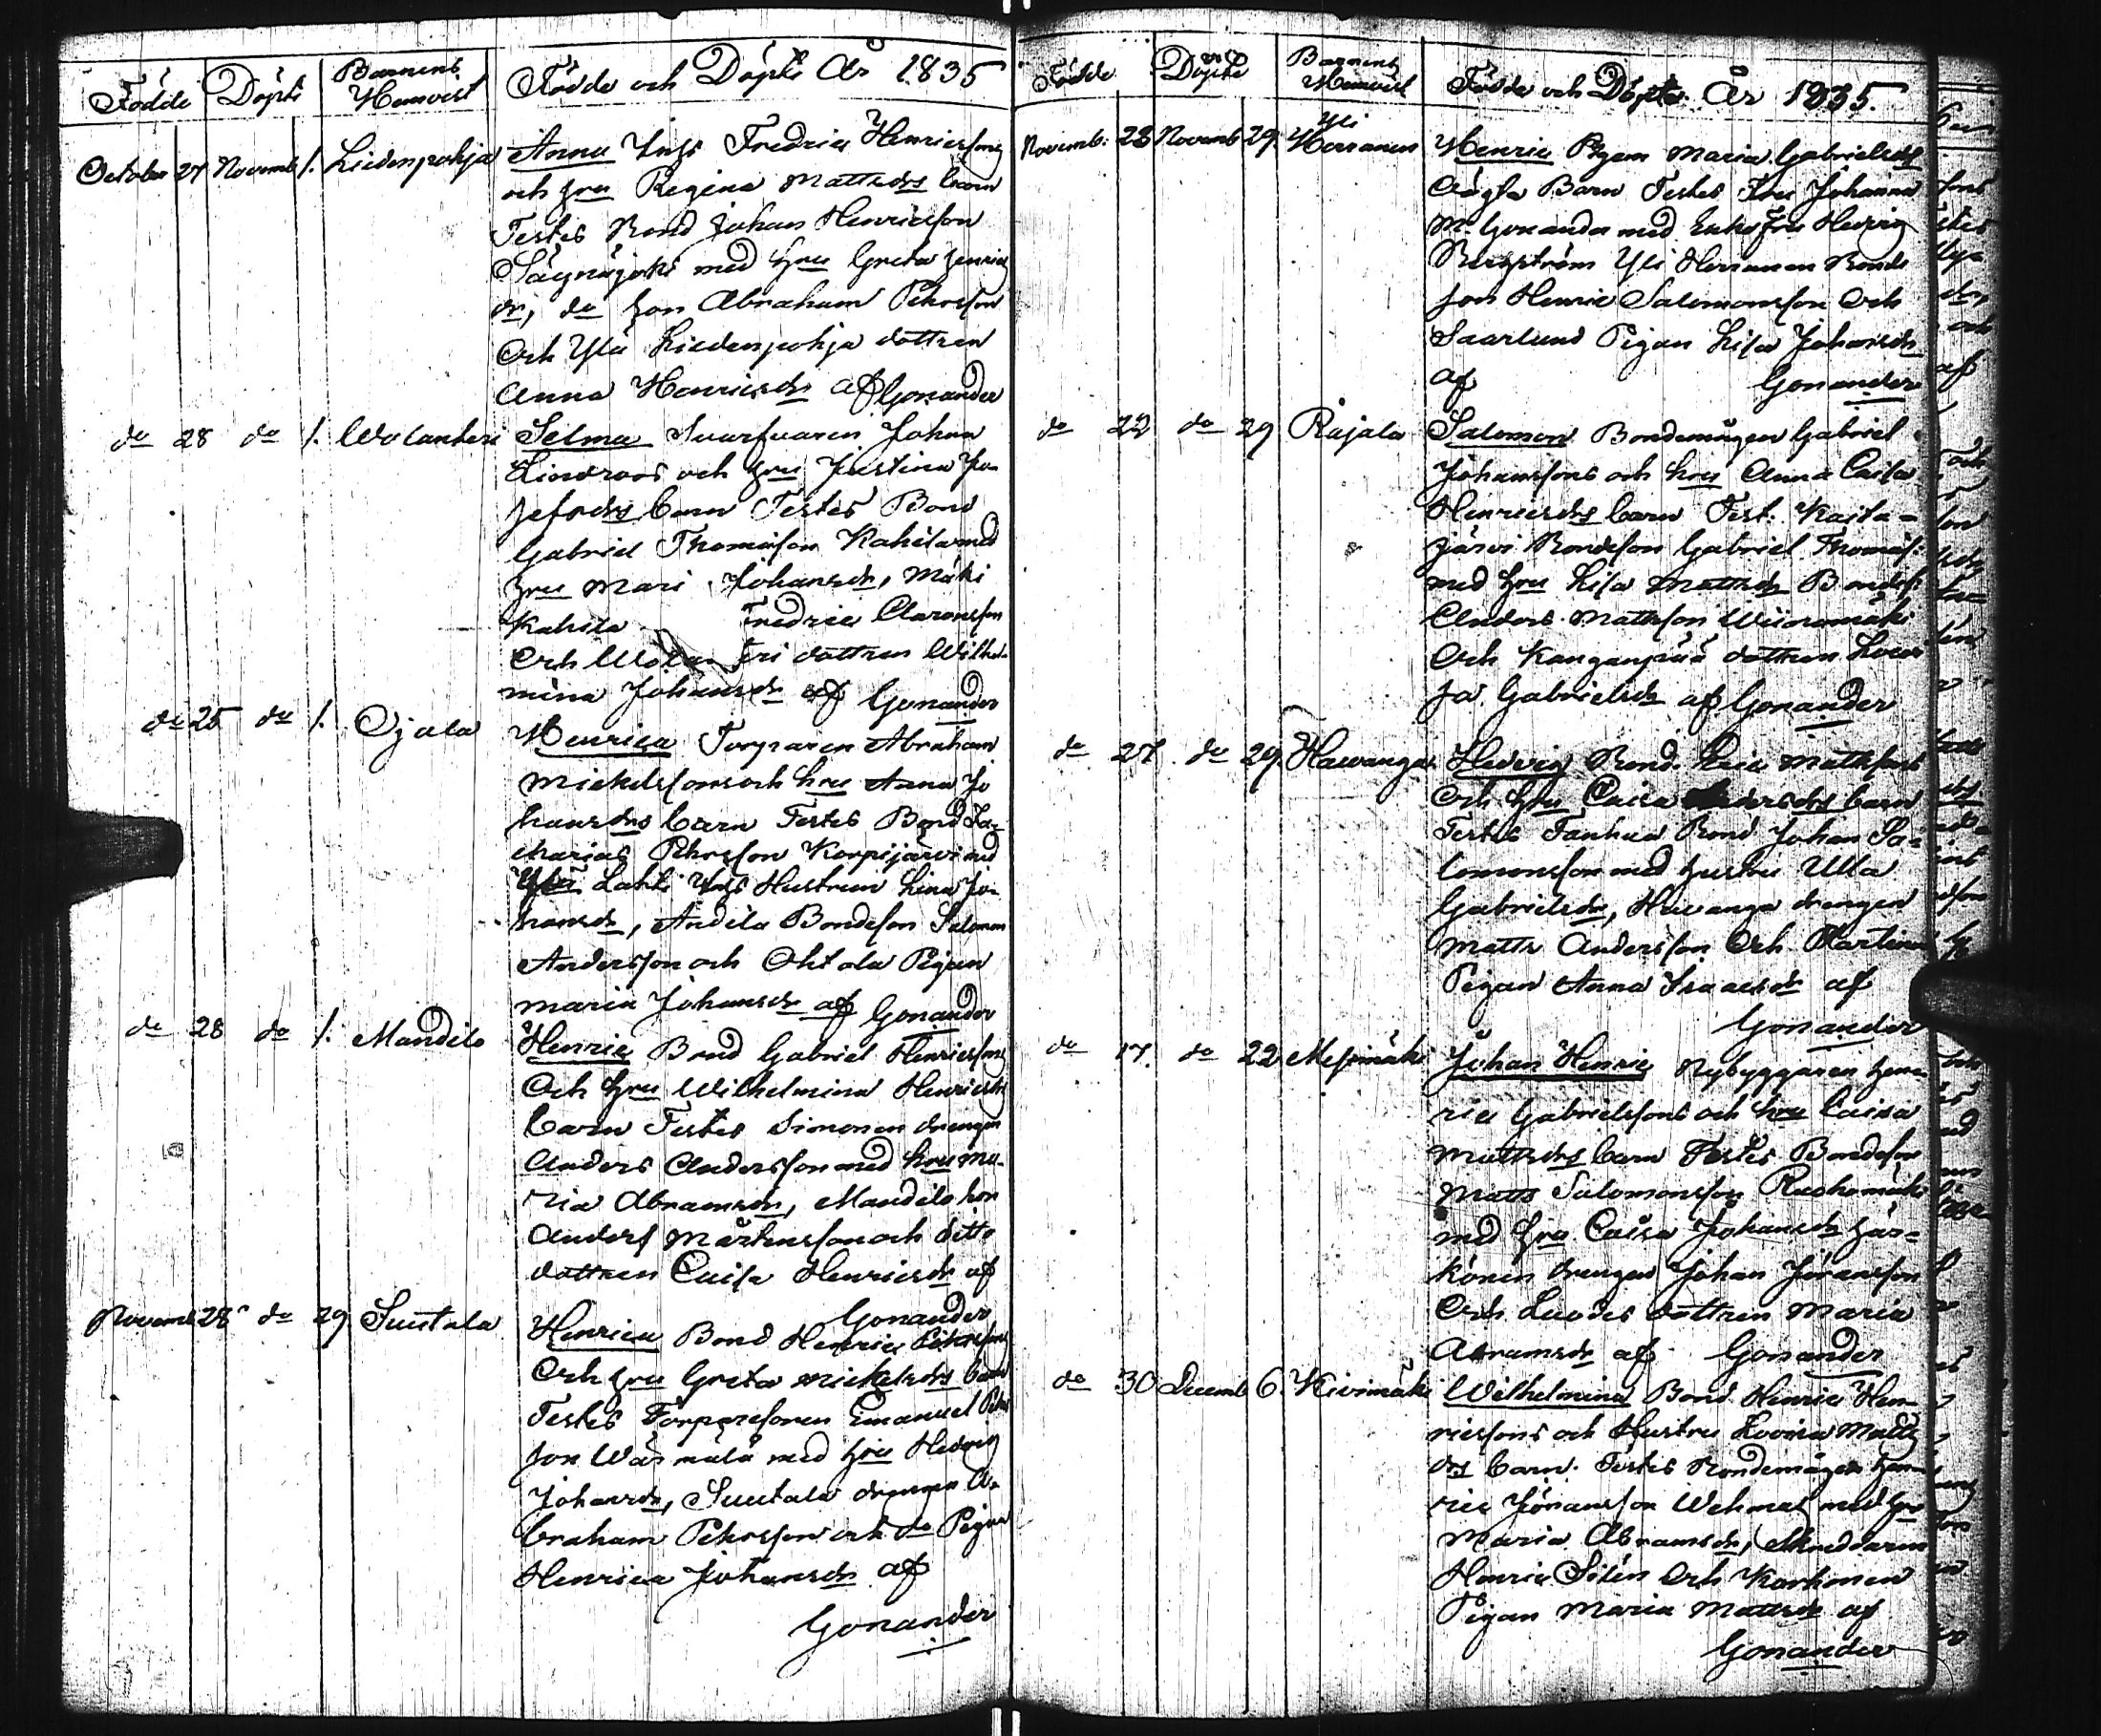 Födde Döpte Barnens Hemvist Födde och Döpte År 1835
October 27 Novemb 1. Liedenpohja Anna Yngs Fredric Henricssons
och hru Regina Mattsdrs barn
Testes Bond Johan Henricsson
med hru Greta Henrics
dr, do son Abraham Pehrsson
Och Yli Liedenpohja dottren
Anna Henricsdr af Gonander
do 28 do 1. Wolanteri Selma Svarfvaren Johan
Lindroos och hru Justina Jo-
sefsdrs barn Testes Bond
Gabriel Thomasson Kahila med
hru Mari Johansdr, Mäki
Kahila Fredric Aaronsson
Och dottren Wilhel-
mina Johansdr af Gonander
do 25 do 1. Ojala Henrica Torparen Abraham
Mickelssons och hru Anna Jo
hansdrs barn Testes Bond Za-
charias Pehrsson Korpijärvi med
Lahti Yngs Hustrun Lina Jo-
hansdr, Andila Bondeson Salomon
Andersson och Ohtola Pigan
Maria Johansdr af Gonander
do 28 do 1. Mandilo Henric Bond Gabriel Henricssons
Och hru Wilhelmina Henricsdrs
barn Testes Simonen drengen
Anders Andersson med hru Ma-
ria Abramsdr, Mandilo son
Anders Mårtensson och ditto
dottren Caisa Henricsdr af
Gonander
Novemb 28 do 29 Suutala Henrica Bond Henric Pehrssons
Och hru Greta Mickelsdrs barn
Testes Torparesonen Emanuel Pehrs
son med hru Hedvig
Johansdr, Suutala drengen A-
braham Pehrsson och do Pigan
Henrica Johansdr af
Gonander
Födde Döpte Barnens Hemvist Födde och Döpte År 1835.
Novemb: 28 Novemb 29. Yli Herranen Henric Pigan Maria Gabrielsdrs
Oägta Barn Testes Fru Johanna
M. Gonander med Enkefru Hedvig
Bergström Yli Herranen Bonde
son Henric Salomonsson Och
Saarlund Pigan Lisa Johansdr
af Gonander
do 22 do 29 Rajala Salomon Bondemågen Gabriel
Johanssons och hru Anna Caisa
Henricsdrs barn Test. Kaita-
järvi Bondeson Gabriel Thomass:
med hru Lisa Mattsdr Bondes:
Anders Mattsson Wiinamäki
Och Kanganpää dottren Lovi
sa Gabrielsdr af Gonander
do 27 do 29. Hawanga Hedvig Bond. Eric Mattssons
Och hru Caisa Andersdrs barn
Testes Tanhua Bond Johan Sa-
lomonsson med hustru Ulla
Gabrielsdr, Hawanga drengen
Matts Andersson Och
Pigan Anna Isacsdr af
Gonander
do 17. do 22 Mesimäki Johan Henric Nybyggaren Hen-
ric Gabrielssons och hru Caisa
Mattsdrs barn Testes Bondeson
Matts Salomonsson Ruohomäki
med hru Caisa Johansdr Här-
könen drengen Johan Jöransson
Och Luodes dottren Maria
Abramsdr af Gonander
do 30 Decemb 6. Kivimäki Wilhelmina Bond. Henric Hen-
ricssons och Hustru Lovisa Matts
drs barn. Testes Bondemågen Hen-
ric Jöransson Wehmas med hru
Maria Abramsdr, Skreddaren
Henric Silén Och Korhonen
Pigan Maria Mattsdr af
Gonander